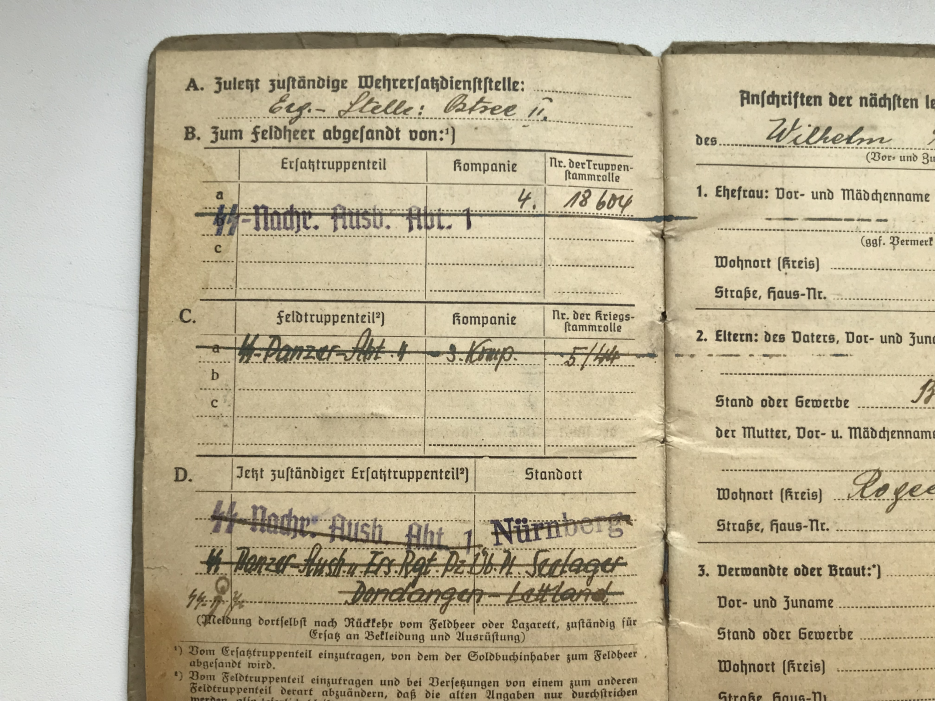 A. Zuletzt zuständige Wehrersatzdienststelle:
Erg.- Stelle: Ostsee II.
B. Zum Feldheer abgesandt von:¹)
Ersatztruppenteil Kompanie Nr. der Truppen-
stammrolle
a 4. 18604
b SS-Nachr. Ausb. Abt. 1
c
C. Feldtruppenteil²) Kompanie Nr. der Kriegs-
stammrolle
a SS-Panzer-Abt. 11 - 3. Komp. 5/44
b
c
D. Jetzt zuständiger Ersatztruppenteil²) Standort
SS Nachr. Ausb. Abt. 1 Nürnberg
SS Panzer-Ausb. u Ers Rgt Pz Üb. Pl Seelager
Dondangen - Lettland
(Meldung dortselbst nach Rückkehr vom Feldheer oder Lazarett, zuständig für
Ersatz an Bekleidung und Ausrüstung)
¹) Vom Ersatztruppenteil einzutragen, von dem der Soldbuchinhaber zum Feldheer
abgesandt wird.
²) Vom Feldtruppenteil einzutragen und bei Versetzungen von einem zum anderen
Feldtruppenteil derart abzuändern, daß die alten Angaben nur durchstrichen
Anschriften der nächsten
des Wilhelm
(Vor- und
1. Ehefrau: Vor- und Mädchenname
(ggf. Vermerk
Wohnort (Kreis)
Straße, Haus-Nr.
2. Eltern: des Vaters, Vor- und
Stand oder Gewerbe
der Mutter, Vor- u. Mädchenname
Wohnort (Kreis)
Straße, Haus-Nr.
3. Verwandte oder Braut:*)
Vor- und Zuname
Stand oder Gewerbe
Wohnort (Kreis)
Straße, Haus-Nr.